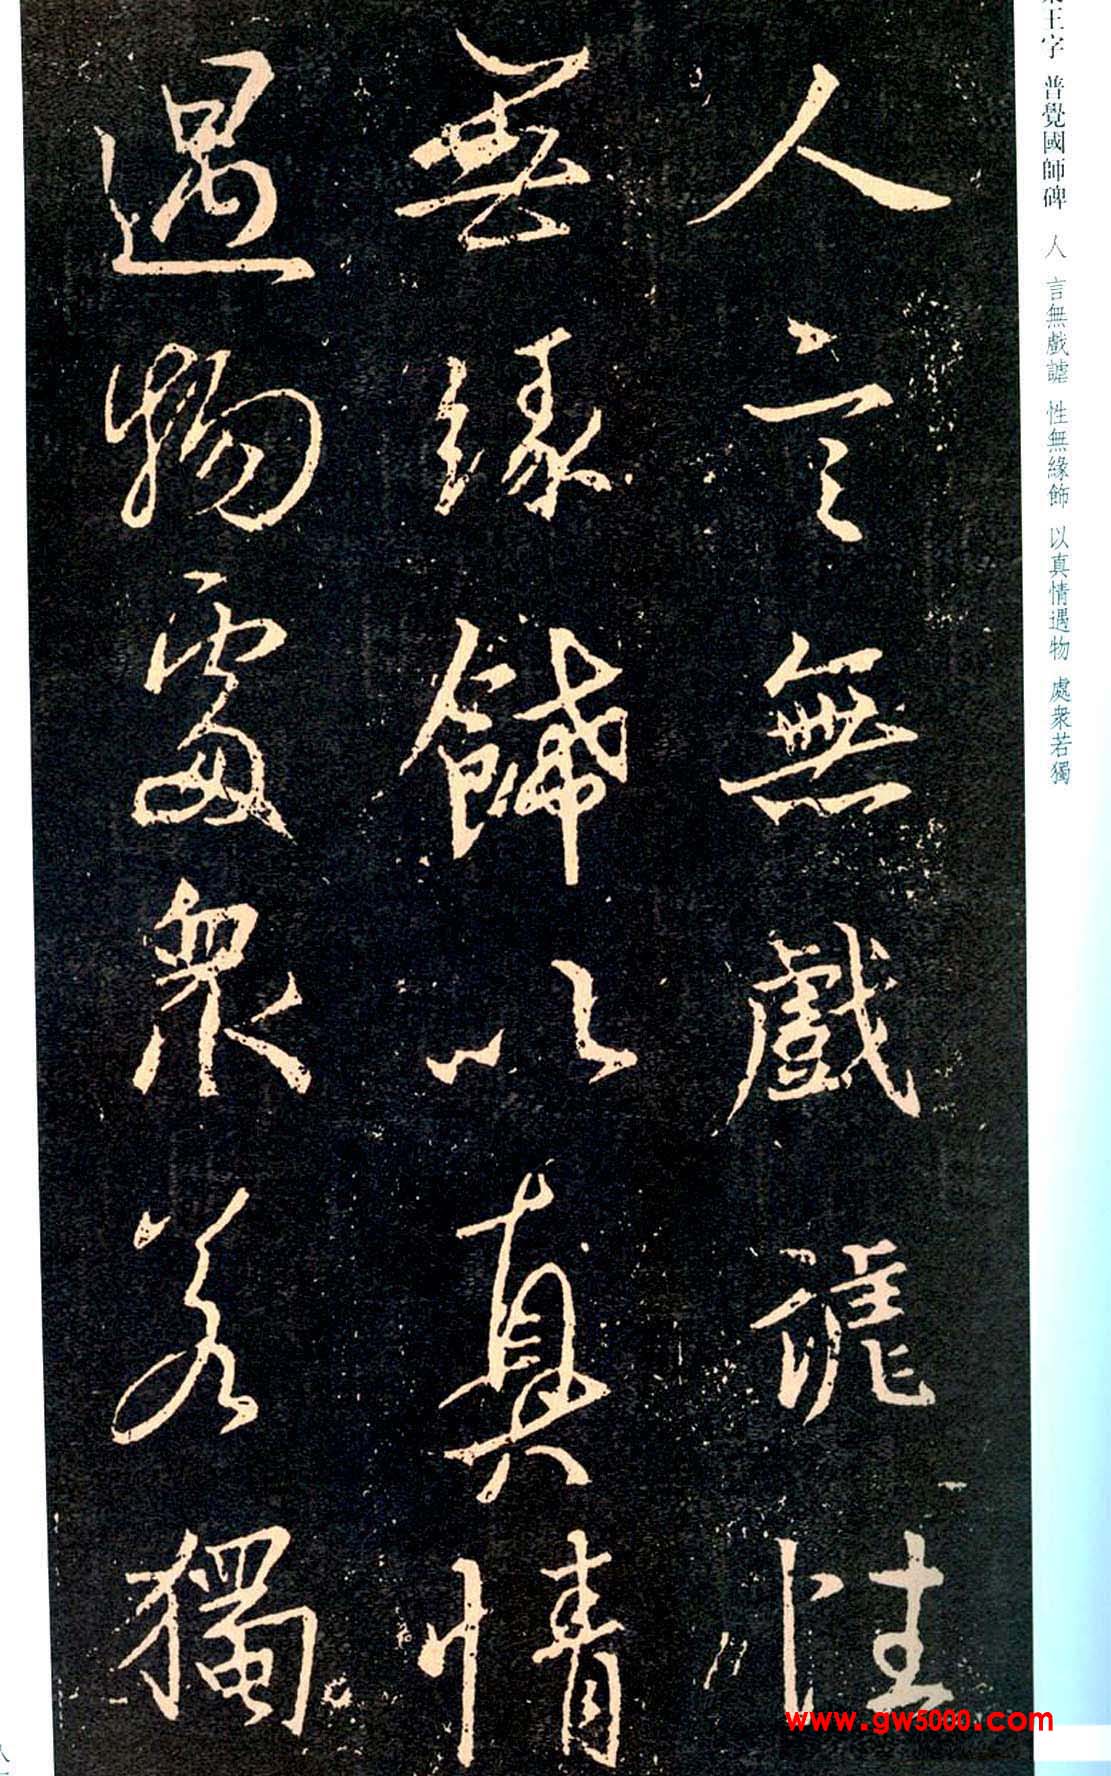 王字 普覺國師碑 人 言無戲謔 性無緣飾 以真情遇物 處衆若獨
人言無戲謔性
無緣飾以真情
遇物處衆若獨
www.gw5000.com